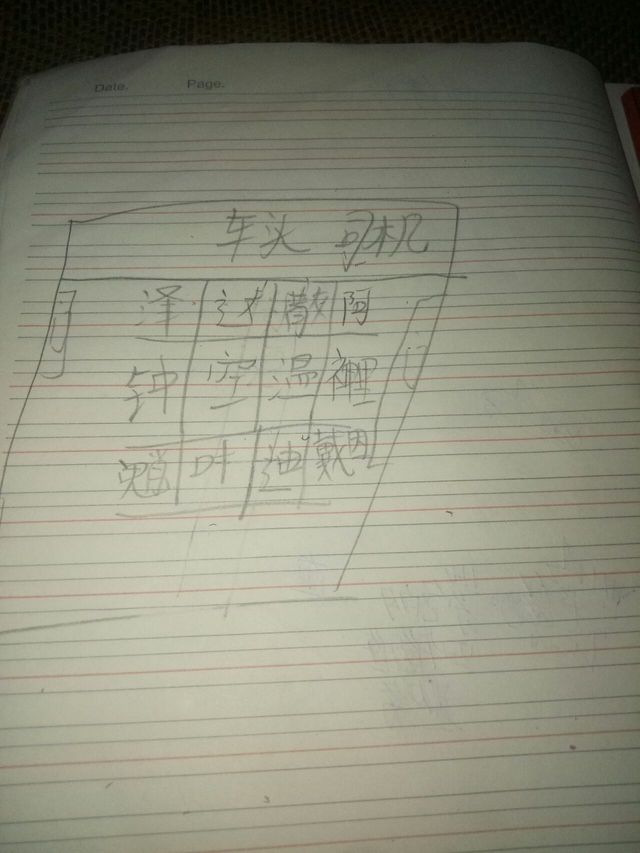 Date. Page.
车头 司机
泽 达 散 阿
钟 空 温 裡
魈 叶 迪 戴因